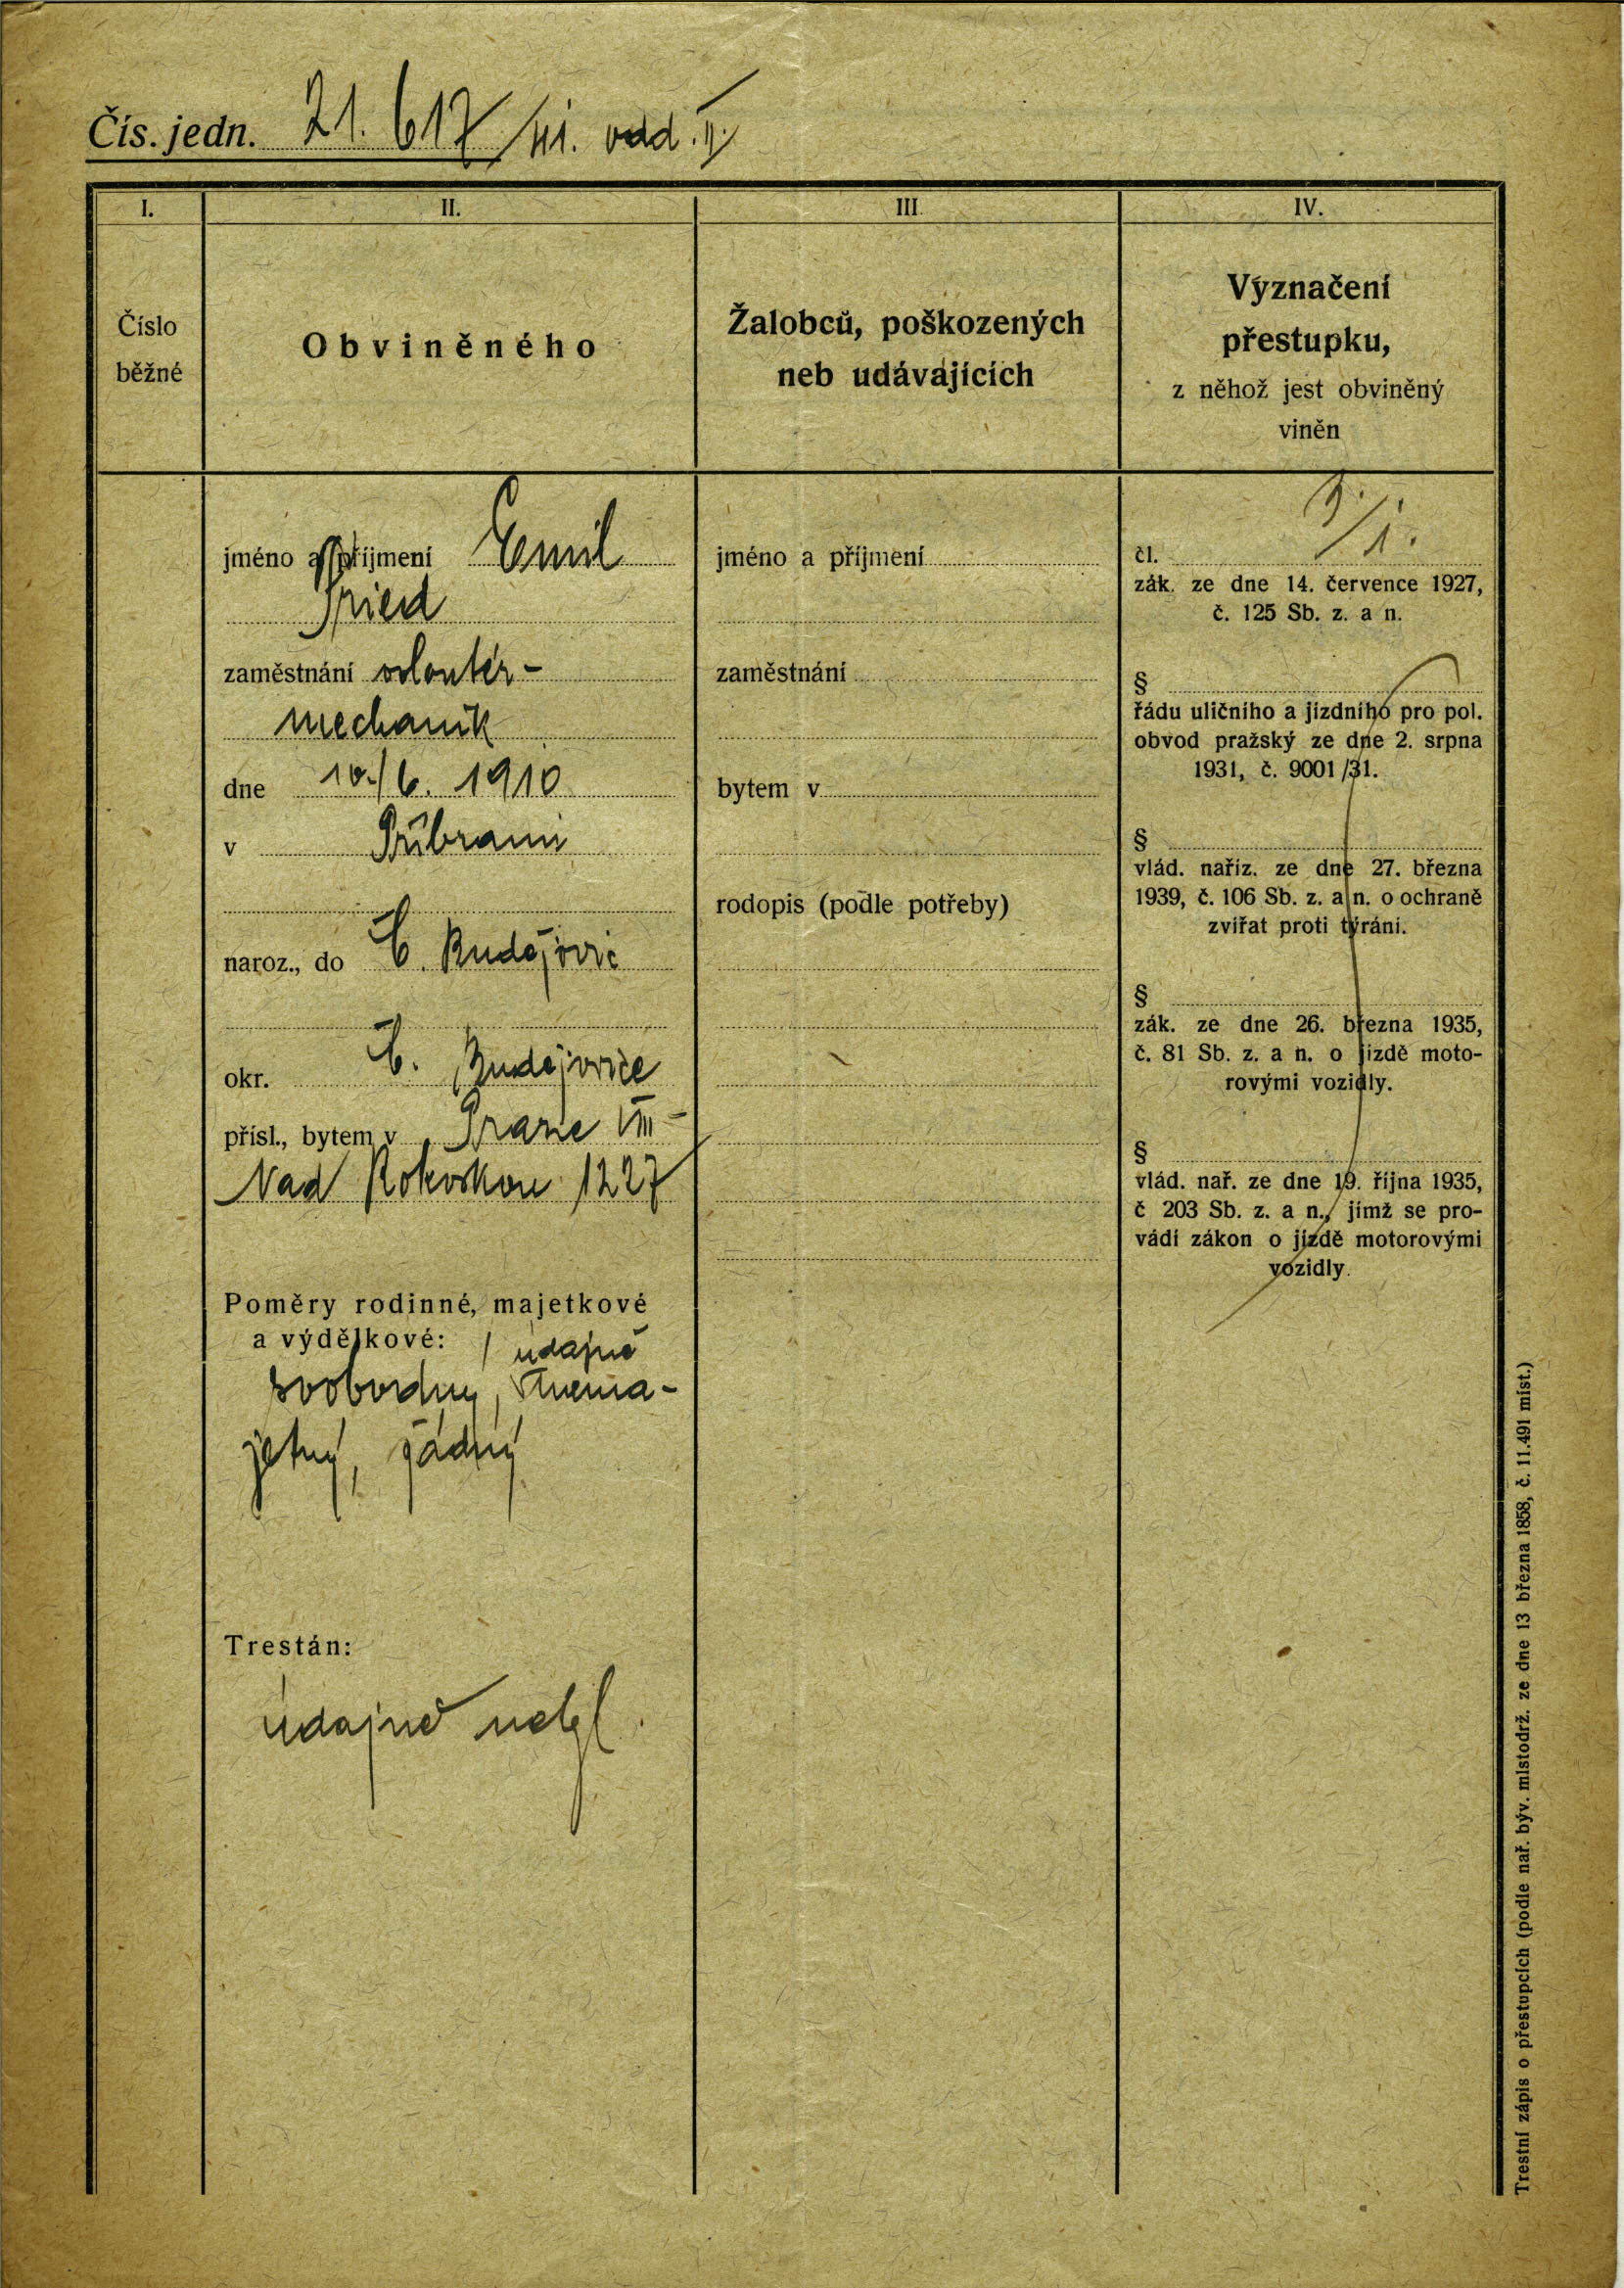 Čís. jedn. 21.617/41. odd. II.
I.
Číslo
běžné
II.
Obviněného
III.
Žalobců, poškozených
neb udávajících
IV.
Vyznačení
přestupku,
z něhož jest obviněný
viněn
jméno a příjmení Emil
Fried
zaměstnání volontér-
mechanik
dne 10./6. 1910
v Příbrami
naroz., do Č. Budějovic
okr. Č. Budějovice
přísl., bytem v Praze VIII-
Nad Rokoskou 1227
Poměry rodinné, majetkové
a výdělkové: údajně
svobodný, nema-
jetný, žádný
Trestán:
údajně nebyl.
jméno a příjmení
zaměstnání
bytem v
rodopis (podle potřeby)
čl. 3/1.
zák. ze dne 14. července 1927,
č. 125 Sb. z. a n.
§
řádu uličního a jízdního pro pol.
obvod pražský ze dne 2. srpna
1931, č. 9001/31.
§
vlád. nařiz. ze dne 27. března
1939, č. 106 Sb. z. a n. o ochraně
zvířat proti týrání.
§
zák. ze dne 26. března 1935,
č. 81 Sb. z. a n. o jízdě moto-
rovými vozidly.
§
vlád. nař. ze dne 19. října 1935,
č 203 Sb. z. a n., jímž se pro-
vádí zákon o jízdě motorovými
vozidly.
Trestní zápis o přestupcích (podle nař. býv. místodrž. ze dne 13 března 1858, č. 11.491 míst.)